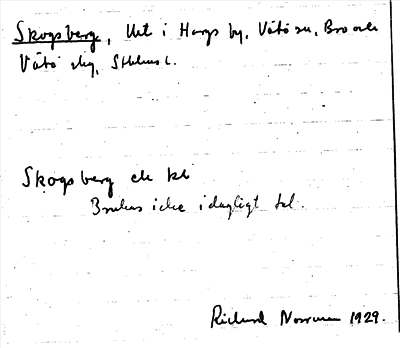 Skogsberg, Uet i Hargs by, Vätö sn, Bro och
Vätö skg, Sthlms l.
Skogsberg ck kb
Brukas icke i dagligt tal.
Richard Norrman 1929.